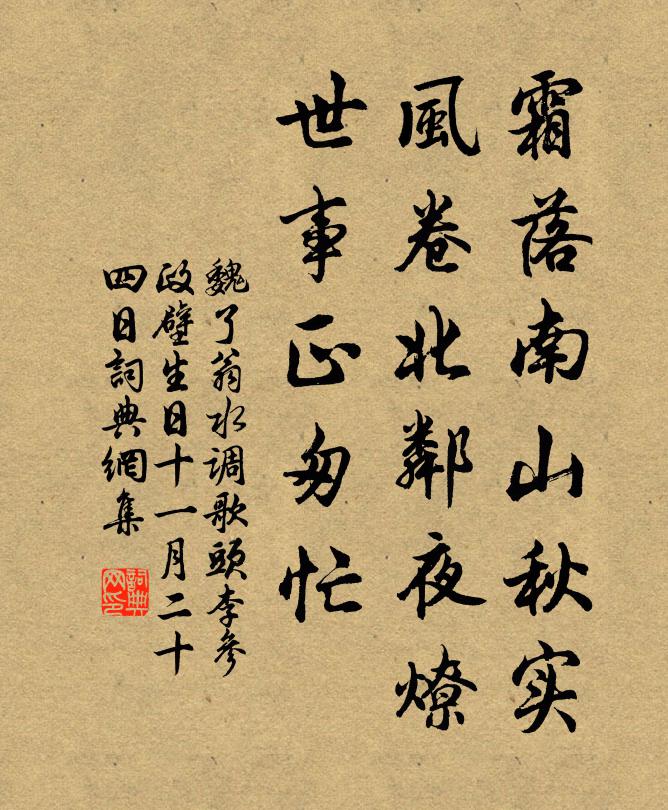 霜落南山秋实
風卷北鄰夜燎
世事正匆忙
魏了翁水调歌頭李參
政壁生日十一月二十
四日詞典網集
詞典
网印